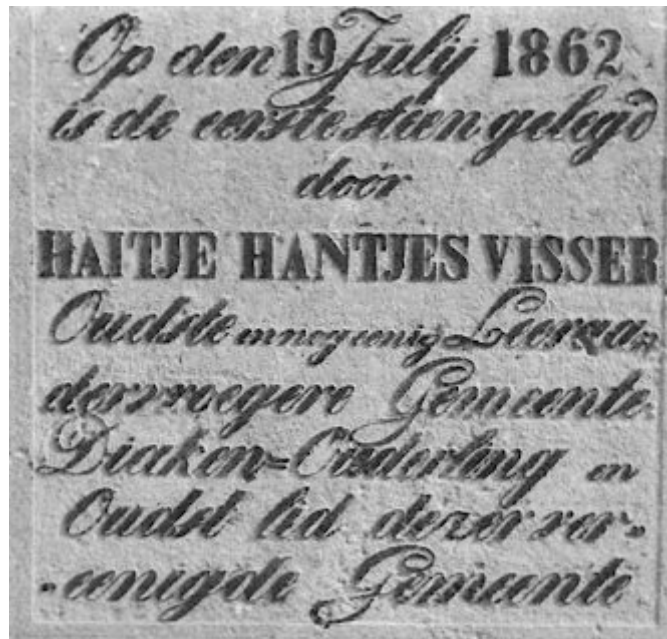 Op den 19 Julij 1862
is de eerste steen gelegd
door
HAITJE HANTJES VISSER
Oudste en nog eenig Leeraar
der vroegere Gemeente
Diaken=Ouderling en
Oudst lid dezer ver-
-eenigde Gemeente